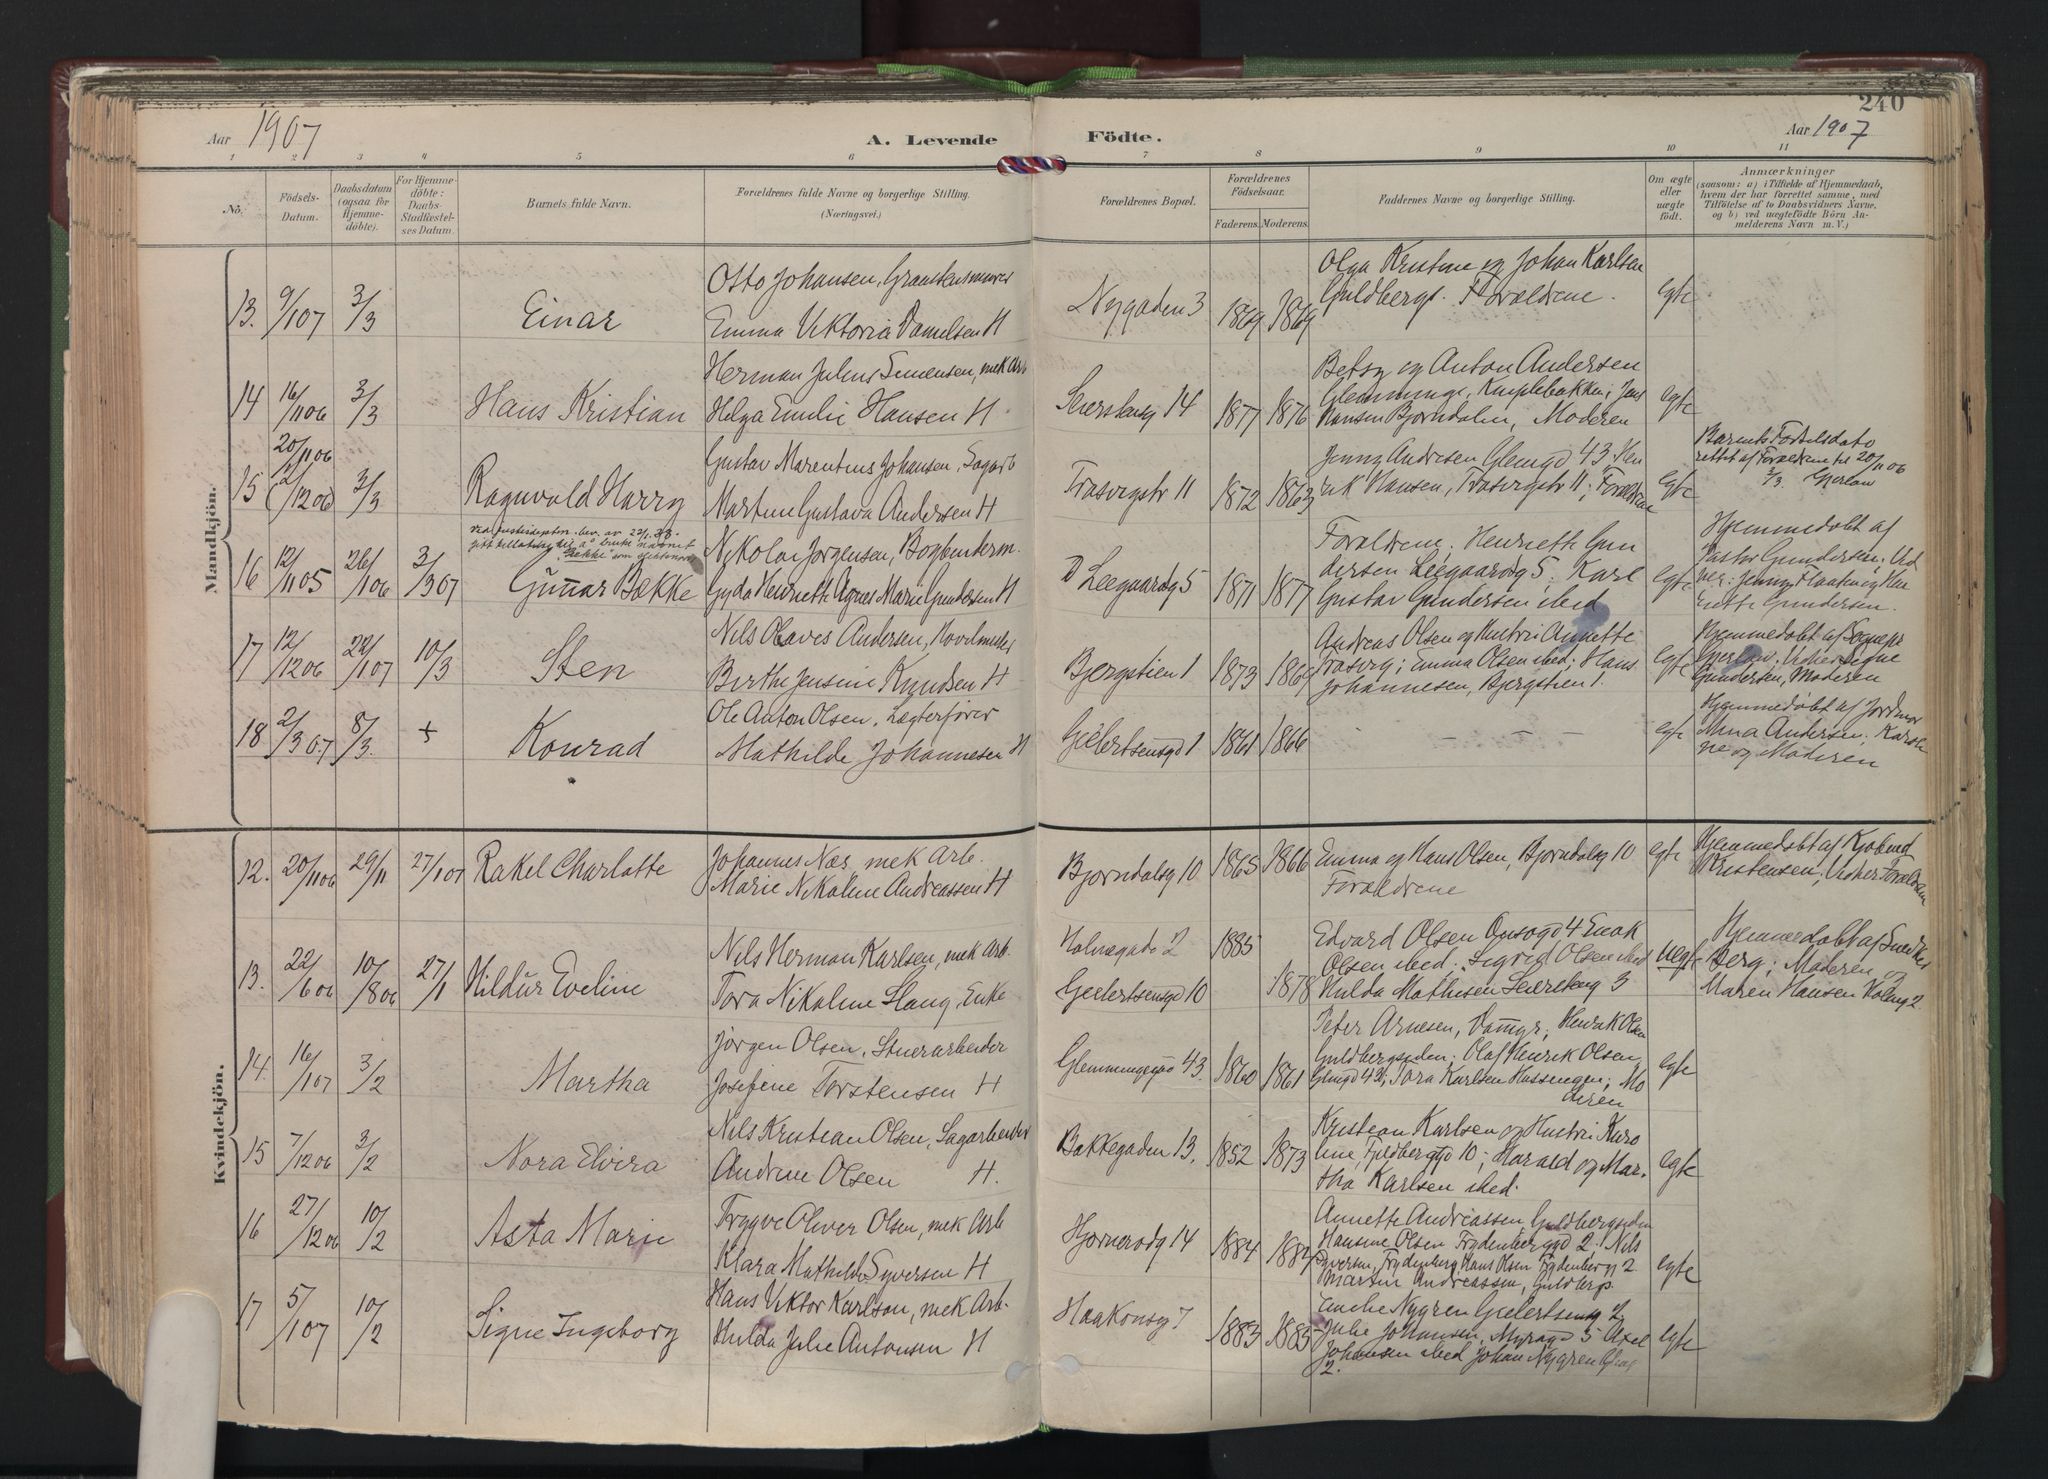 240
Aar 1907
A. Levende Födte.
Aar 1907
1 2 3 4 5 6 7 8 9 10 11
No.
Födsels-Datum.
Daabsdatum (ogsaa for Hjemmedöbte).
For Hjemmedöbte: Daabs-Stadfæstelses Datum.
Barnets fulde Navn.
Forældrenes fulde Navne og borgerlige Stilling.
(Næringsvei.)
Forældrenes Bopæl.
Forældrenes Födselsaar.
Faderens. Moderens.
Faddernes Navne og borgerlige Stilling.
Om ægte eller uægte födt.
Anmærkninger
(saasom: a) i Tilfælde af Hjemmedaab,
hvem der har forrettet samme, med
Tilföielse af to Daabsvidners Navne,
og b) ved uægtefödte Börn An-
melderens Navn m. V.)
Mandkjön.
13. 9/1 07 3/3 Einar
Otto Johansen, Granstensmurer
Emma Viktoria Danielsen H
Nygaden 3 1869 1869
Olga Kristine og Johan Karlsen
Guldbergs. Forældrene.
egte
14 16/11 06 3/3 Hans Kristian
Herman Julius Simensen, mek Arb
Helga Emilie Hansen H
Seierstensg 14 1877 1876
Betsy og Anton Andersen
Glemminge, Kniplebakken; Jens
Hansen Bjorndalen, Moderen
egte
20/11 06
15 (2/12 06) 3/3 Ragnvald Harry
Gustav Marentius Johansen, Sagarb
Martine Gustava Andersen H
Trasvigstr 11 1872 1863
Jenny Andresen Glemgd 43, Hen
rik Hansen, Trasvigstr 11; Forældrene
egte
Barnets Fodselsdato
rettet af Forældrene til 20/11 06
3/3. Gjerløw
16 12/11 05 26/1 06 3/3 07
via justisdeptm. bev. av 23/1.
gitt tillatelse til å bruke navnet
"Bekke" som efternavn
Gunnar Bække
Nikolai Jørgensen, Bogbinderm.
Gyda Henriette Agnes Marie Gundersen H
D Leegaardsg 5 1871 1877
Forældrene, Henriette Gun
dersen Leegaardsg 5. Karl
Gustav Gundersen ibed
egte
Hjemmedøbt af
Pastor Gundersen. Vid
ner: Jenny Flaatvig Hen
riette Gundersen.
17 12/12 06 22/1 07 10/3 Sten
Nils Olaves Andersen, Hovelmester
Birthe Jensine Knudsen H
Bjergstien 1 1873 1869
Andreas Olsen og Hustru Annette
Trasvig; Emma Olsen ibed; Hans
Johannesen, Bjergstien 1.
egte
Hjemmedøbt af Sognepr
Gjerløw. Vidner Signe
Gundersen, Moderen
18 2/3 07 8/3. + Konrad
Ole Anton Olsen, Lægterfører
Mathilde Johannesen H
Gielertsensgd 1 1861 1866
- - - -
egte
Hjemmedøbt af Jordmor
Mina Andersen. Karoli
ne og Moderen
Kvindekjön.
12. 20/11 06 29/11 27/1 07 Rakel Charlotte
Johannes Næs, mek Arb.
Marie Nikoline Andreassen H
Bjorndalsg 10 1865 1866
Emma og Hans Olsen, Bjorndalsg 10
Forældrene
egte
Hjemmedøbt af Kjøbmd
Kristensen; Vidner Forældrene
13. 22/6 06 10/8 06 27/1 Hildur Eveline
Nils Herman Karlsen, mek Arb.
Tora Nikoline Slang, Enke
Holmegade 2 1885
Geelertsensgd 10 1878
Edvard Olsen Onsøgd 4 Enok
Olsen ibed; Sigrid Olsen ibed
Hulda Mathisen Seiersteng 3
uegte
Hjemmedøbt af Snedker
Berg; Moderen og
Maren Hansen Holmg 2
14. 16/1 07 3/2 Martha
Jørgen Olsen, Stuerarbeider
Josefine Torstensen H
Glemmingegd 43. 1860 1861
Peter Arnesen, Damyr; Henrik Olsen
Guldbergsiden; Olaf Henrik Olsen,
Glmgd 43; Tora Karlsen Hassengen; Mo
deren
egte
15 7/12 06 3/2 Nora Elvira
Nils Kristian Olsen, Sagarbeider
Andrine Olsen H.
Bakkegaden 13. 1852 1873
Kristian Karlsen og Hustru Karo
line, Fjeldbergsgd 10; Harald og Mar-
tha Karlsen ibed.
egte
16 27/12 06 10/2 Asta Marie
Tryggve Oliver Olsen, mek Arb
Klara Mathilde Syversen H
Hjornerodg 14 1884 1884
Annette Andreassen, Guldbergsiden
Hansine Olsen Frydenberggd 2. Nils
Syversen, Frydenberg, Hans Olsen Frydenberg 2
Martin Andreassen, Guldbergs.
egte
17 5/1 07 10/2 Signe Ingeborg
Hans Viktor Karlson, mek Arb.
Hulda Julie Antonsen H
Haakonsg 7 1883 1885
Emilie Nygren Gielertsensg 2
Julie Johansen, Myragd 5 Axel
Johansen ibed Johan Nygren
2.
egte